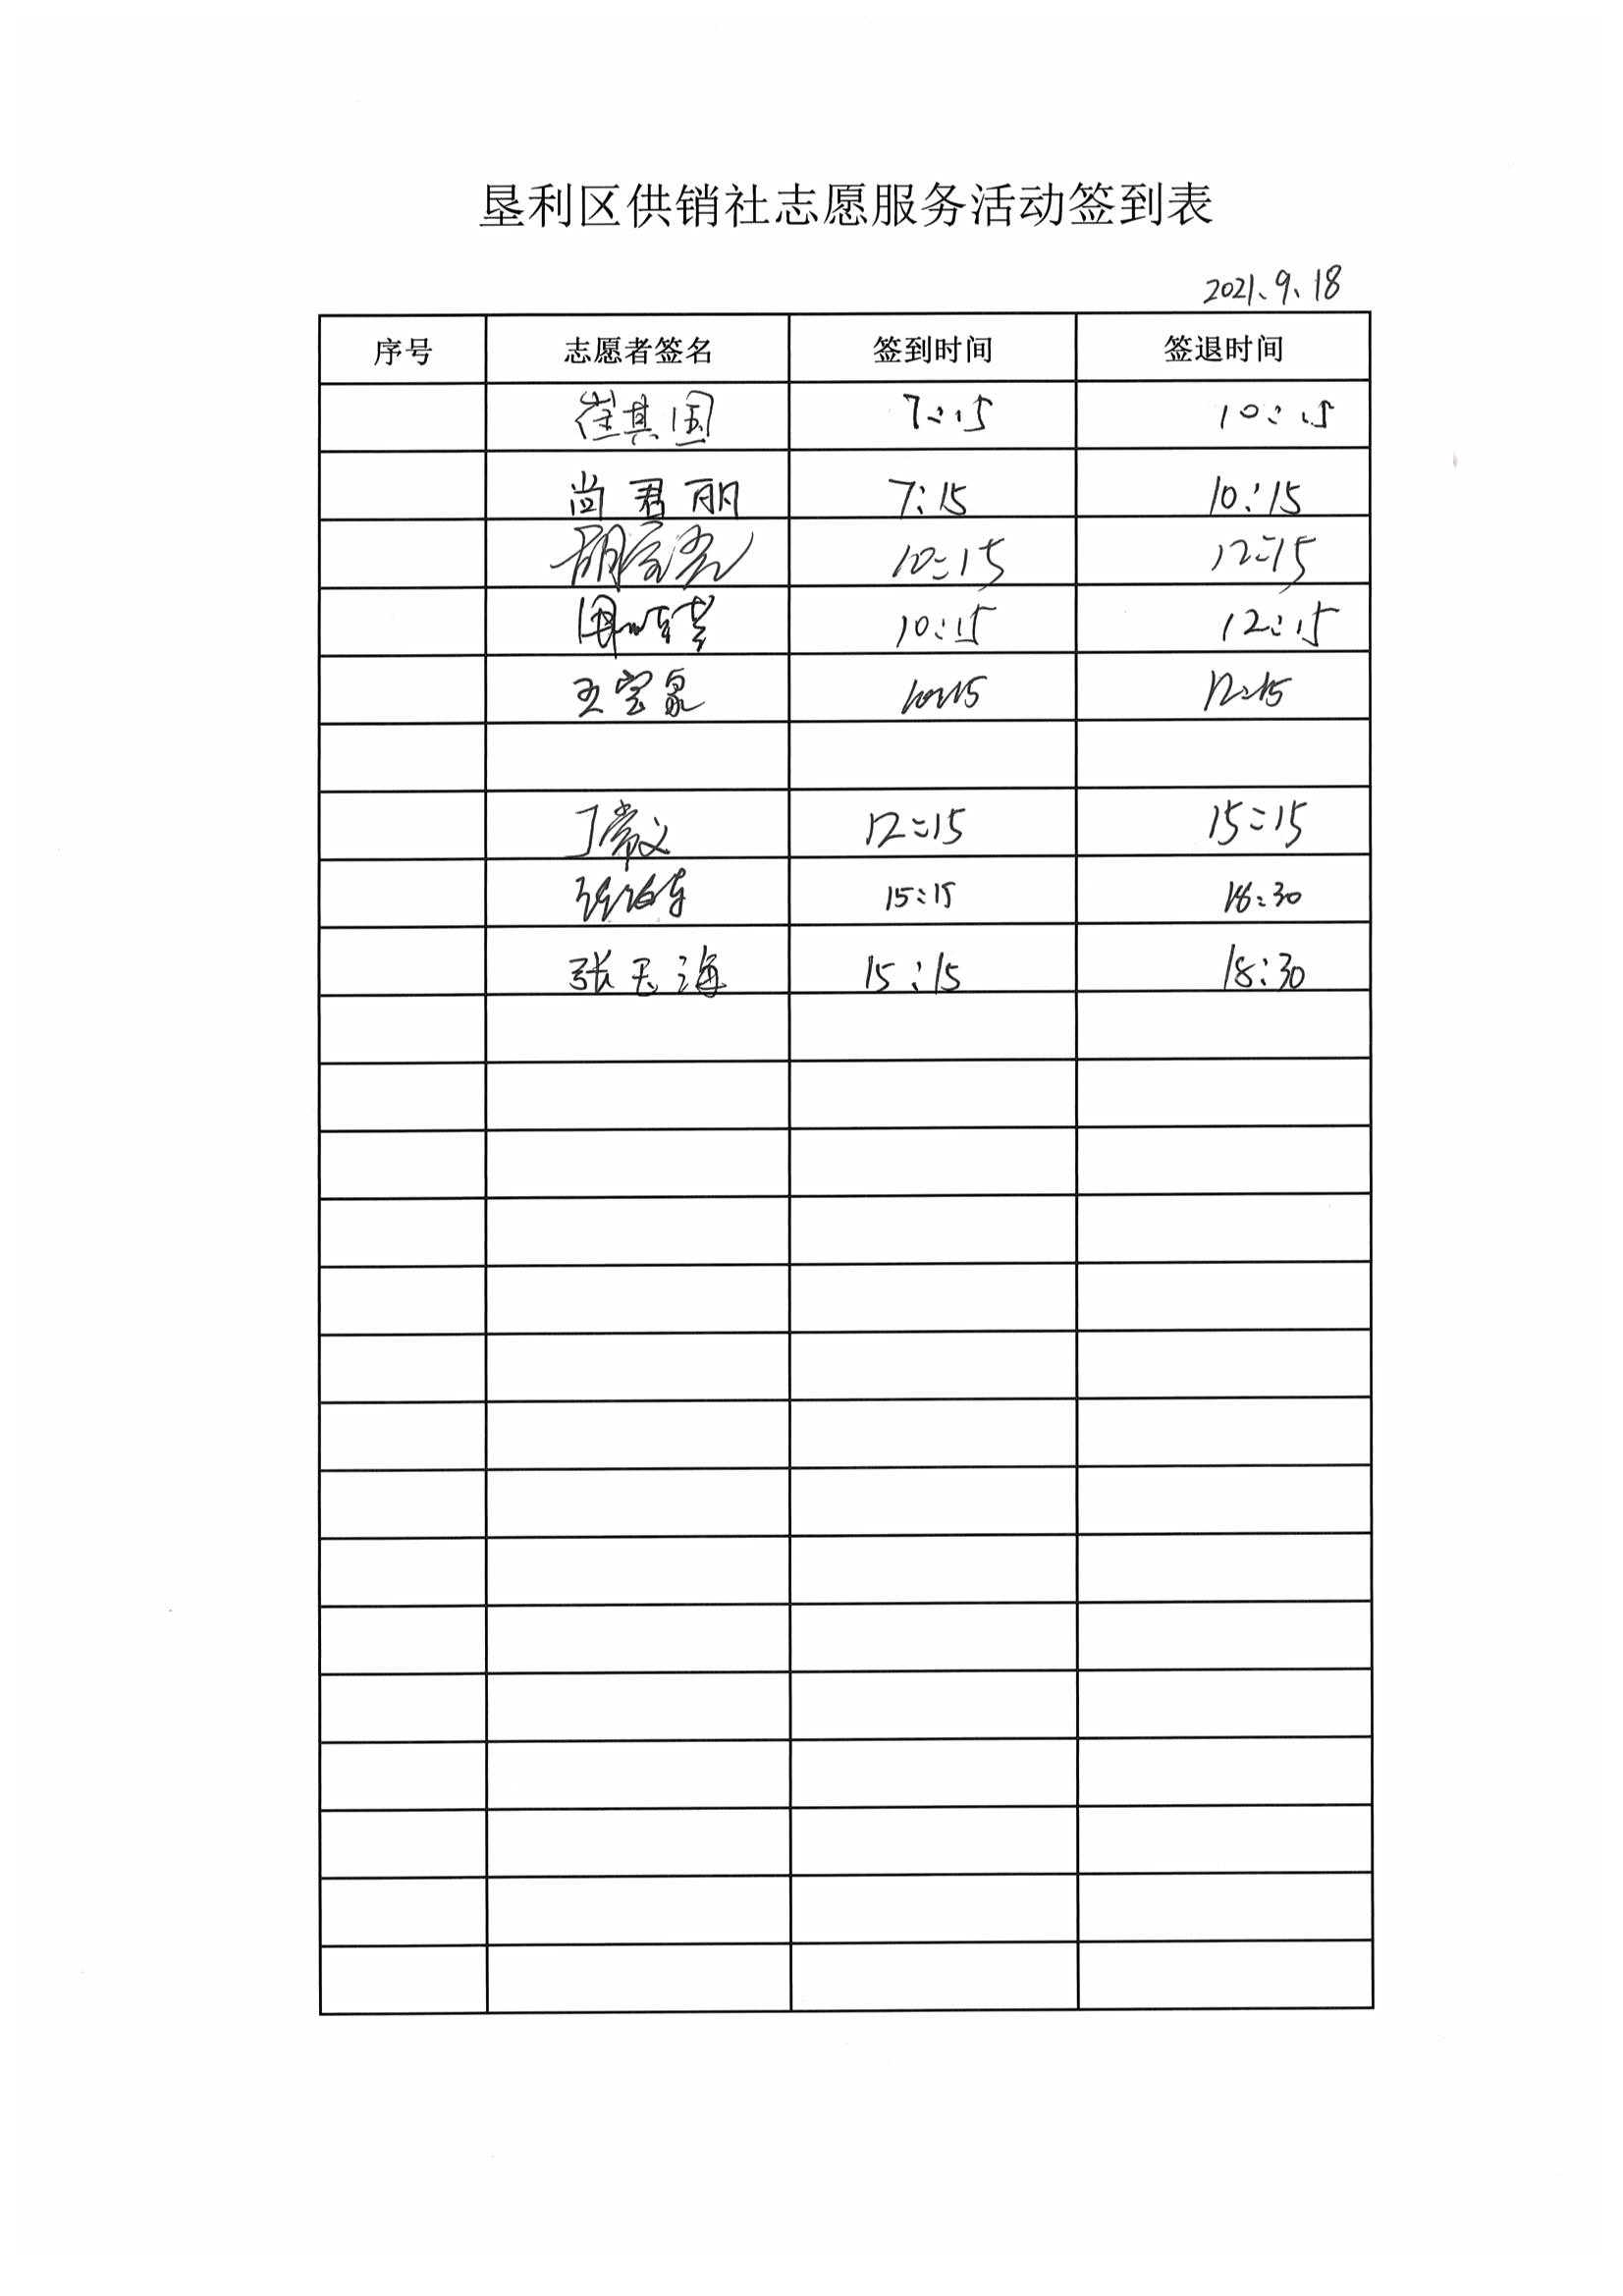 垦利区供销社志愿服务活动签到表
2021、9、18
序号 志愿者签名 签到时间 签退时间
崔其国 7:15 10:15
尚君丽 7:15 10:15
胡 10:15 12:15
周 10:15 12:15
王宝泉 10:15 12:15
丁常文 12:15 15:15
张 15:15 18:30
张玉海 15:15 18:30